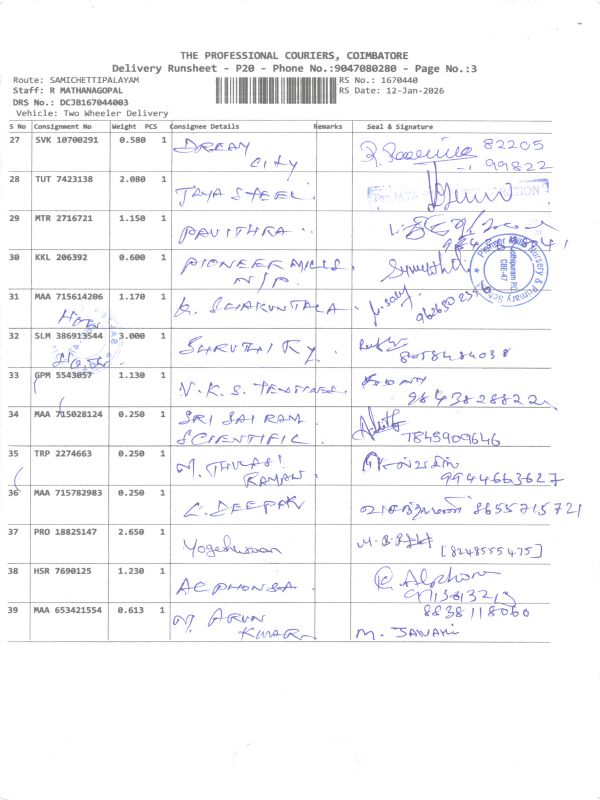 THE PROFESSIONAL COURIERS, COIMBATORE
Delivery Runsheet - P20 - Phone No.:9047080280 - Page No.:3
Route: SAMICHETTIPALAYAM
Staff: R MATHANAGOPAL
DRS No.: DCJB167044003
Vehicle: Two Wheeler Delivery
RS No.: 1670440
RS Date: 12-Jan-2026
S No Consignment No Weight PCS Consignee Details Remarks Seal & Signature
27 SVK 10700291 0.580 1 DREAM CITY 82205 99822
28 TUT 7423138 2.080 1 JAYA STEEL
29 MTR 2716721 1.150 1 PAVITHRA
30 KKL 206392 0.600 1 PIONEER MILLS. N/P
Pioneer Mills Nursery & Primary School
CBE-47
31 MAA 715614206 1.170 1 K. SHAKUNTALA
32 SLM 386913544 3.000 1 SHRUTHI KY.
33 GPM 5543057 1.130 1 V.K.S. 9843828822
34 MAA 715028124 0.250 1 SRI SAI RAM SCIENTIFIC 7845909646
35 TRP 2274663 0.250 1 M. THULASI RAMAN 9944663627
36 MAA 715782983 0.250 1 C. DEEPAK 8655715721
37 PRO 18825147 2.650 1 Yogeshwaran [8248555475]
38 HSR 7690125 1.230 1 ALPHONSA R. Alphon
39 MAA 653421554 0.613 1 M. ARUN KUMAR 8838118060 M. JANAKI